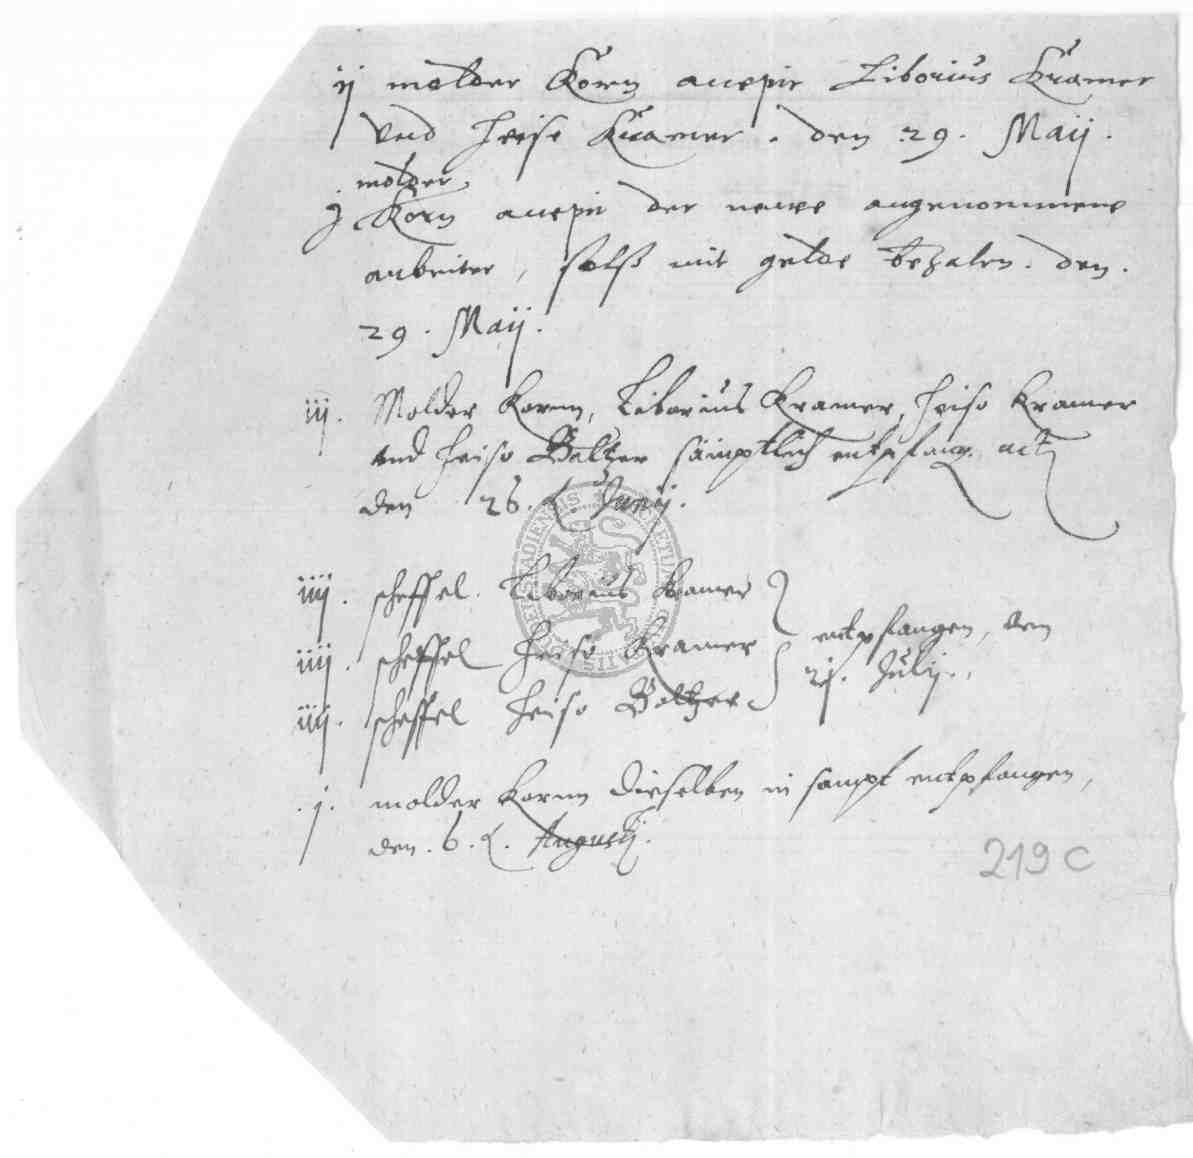 ij molder Korn accepit Liborius Kramer
vnd Heise Kramer . den 29. Maij.
molder
j Korn accepit der newe angenommene
arbeiter, solß mit gelde bezalen. den.
29. Maij.
iij. Molder Kornn, Liborius Kramer, Heiso Kramer
vnd Heiso Baltzer sämptlich entpfang. act
den 26. Junij.
iiij. scheffel. Liborius Kramer
iiij. scheffel Heiso Kramer entpfangen, den
iiij. scheffel Heiso Baltzer 21. Julij.
.j. molder Kornn dieselben in sampt entpfangen,
den. 6. Augustj.
219 C